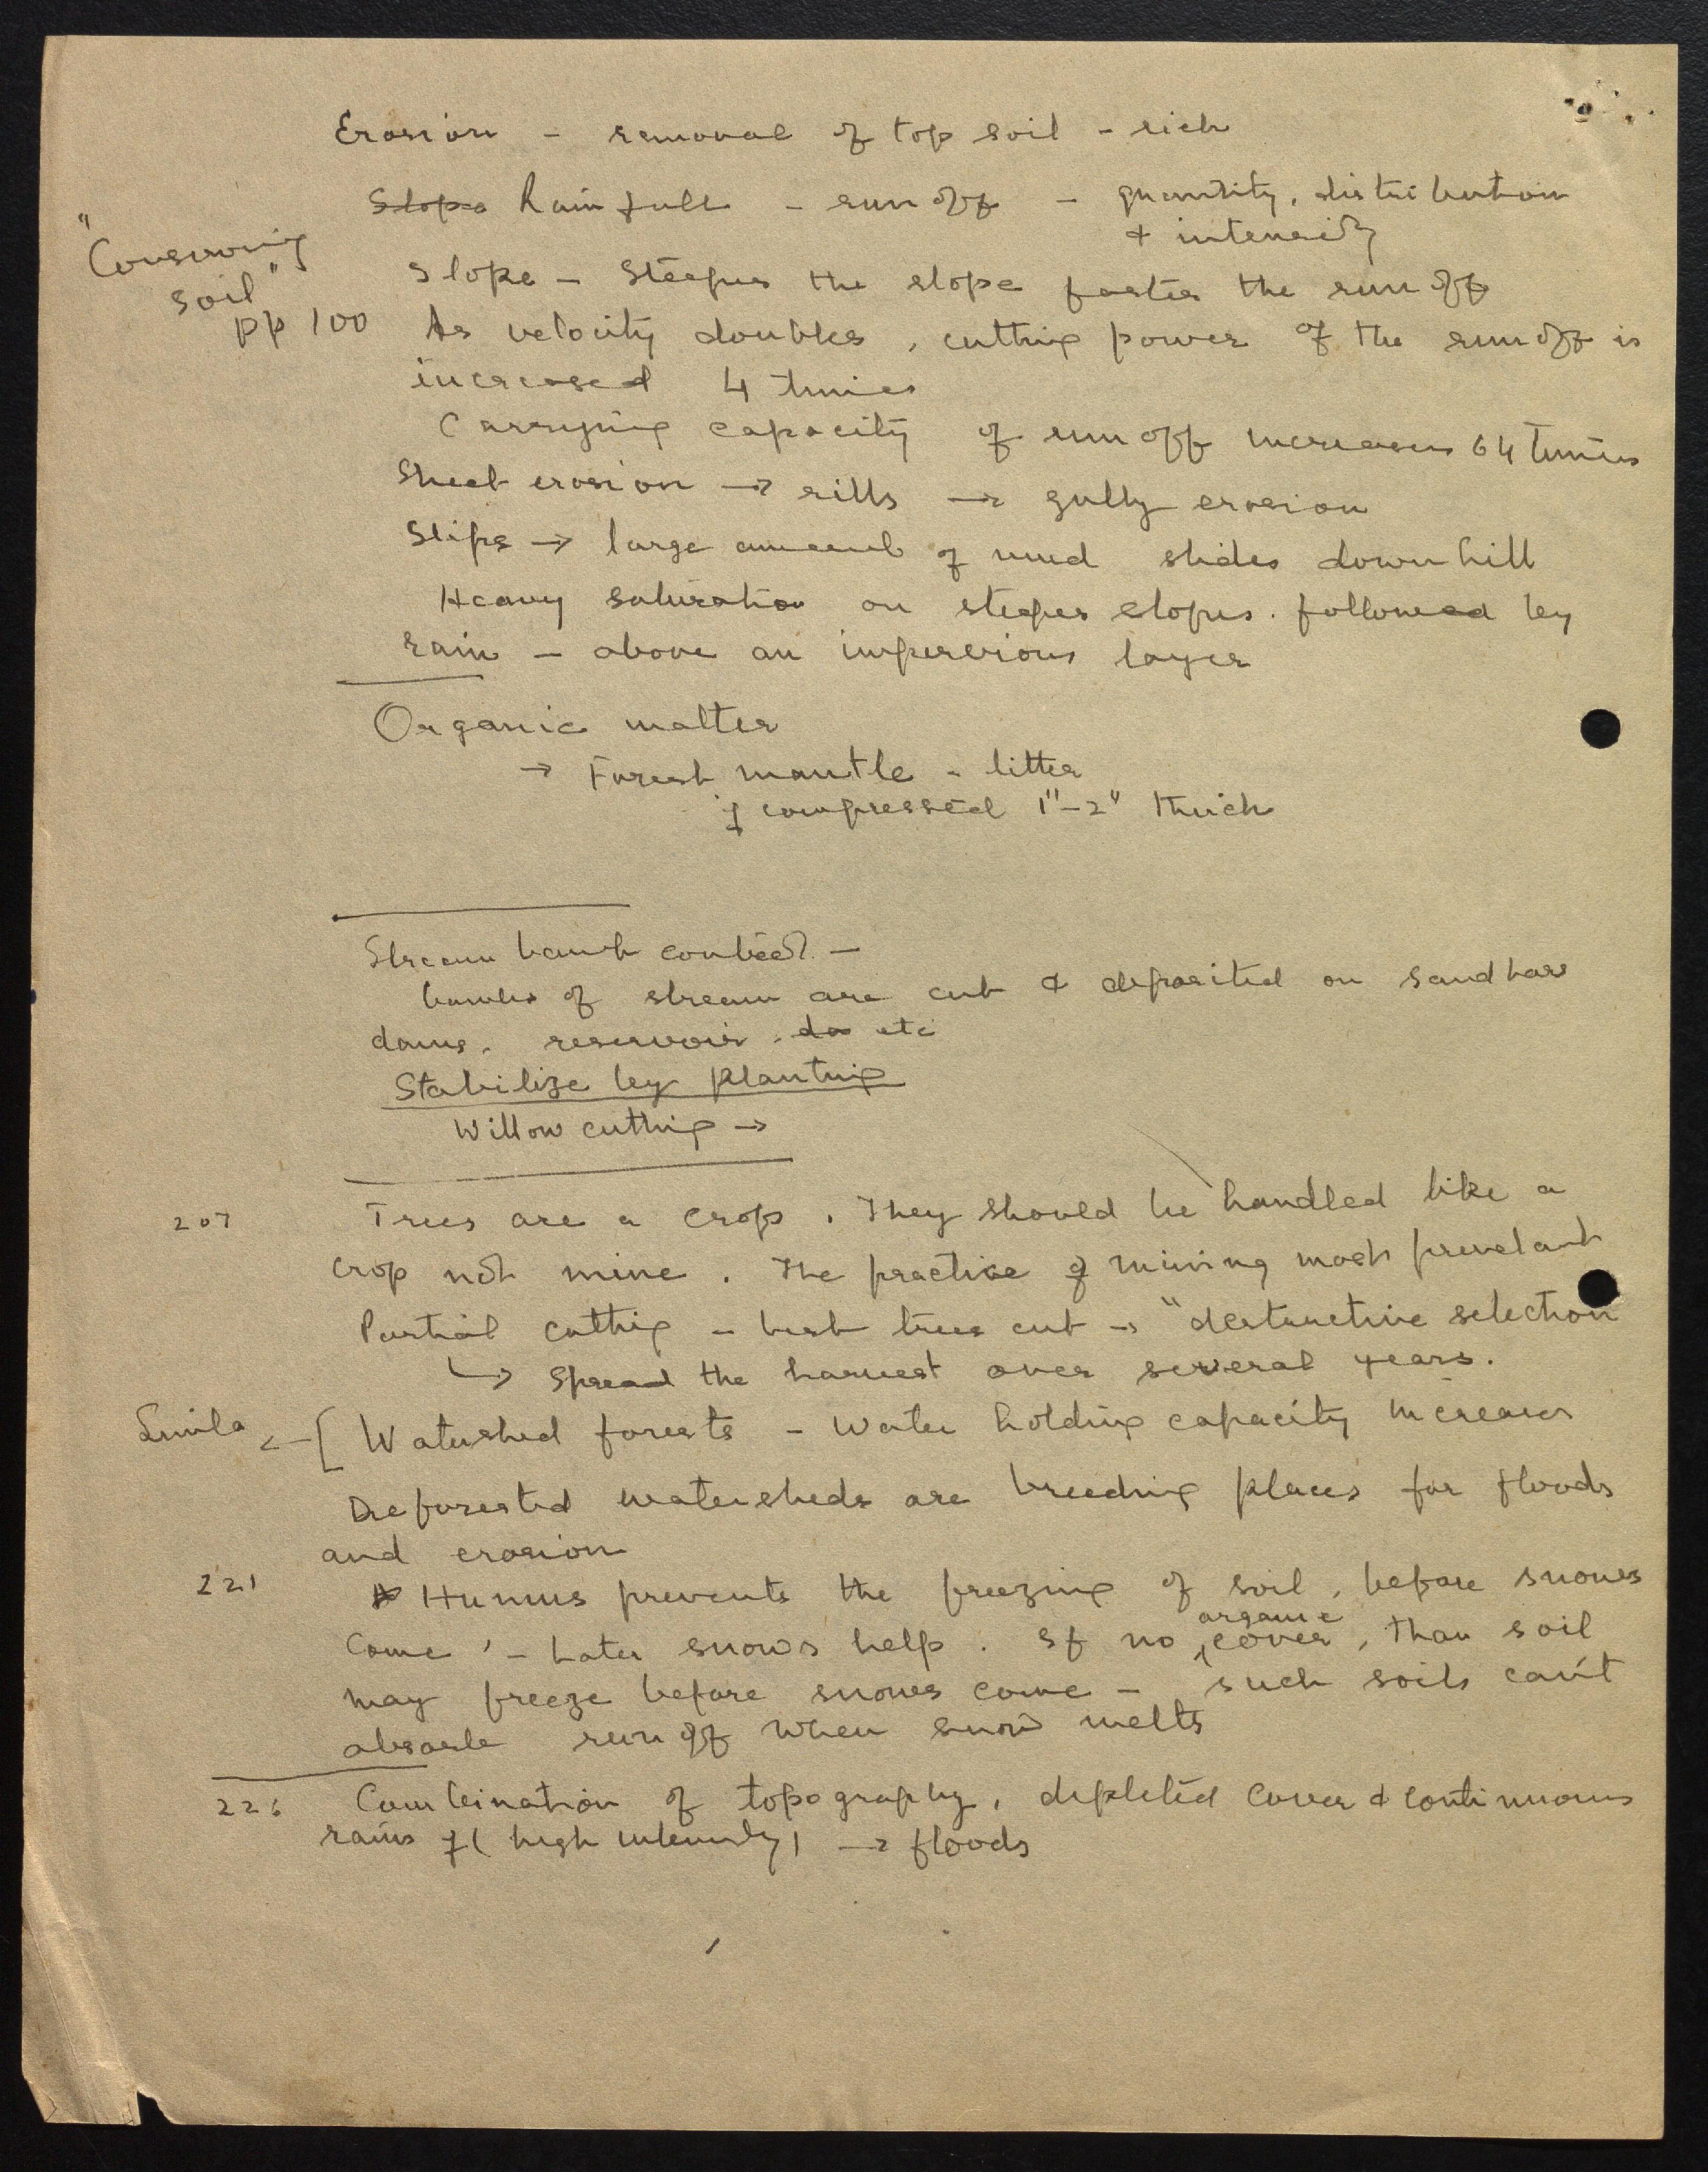 Erosion - removal of top soil - rich
Slope Rainfall - run off - quantity, distribution
& intensity
"Conserving
soil"
pp 100
Slope - Steeper the slope faster the run off
As velocity doubles, cutting power of the run off is
increased 4 times
Carrying capacity of run off increases 64 times
Sheet erosion → rills → gully erosion
Slips → large amount of mud slides down hill
Heavy saturation on steeper slopes. followed by
rain - above an impervious layer
Organic matter
→ Forest mantle - litter
if compressed 1"-2" thick
Stream bank control -
banks of stream are cut & deposited on sand bars
dams, reservoir, do etc
Stabilize by planting
Willow cutting →
207 Trees are a crop. They should be handled like a
crop not mine. The practice of mining most prevelant
Partial cutting - best trees cut → "destructive selection
↳ Spread the harvest over several years.
← [ Watershed forests - Water holding capacity increases
Deforested watersheds are breeding places for floods
and erosion
221 Humus prevents the freezing of soil, before snows
come - Later snows help. If no organic cover, than soil
may freeze before snows come - such soils can't
absorb run off when snow melts
226 Combination of topography, depleted cover & continuous
rains if (high intensity) → floods